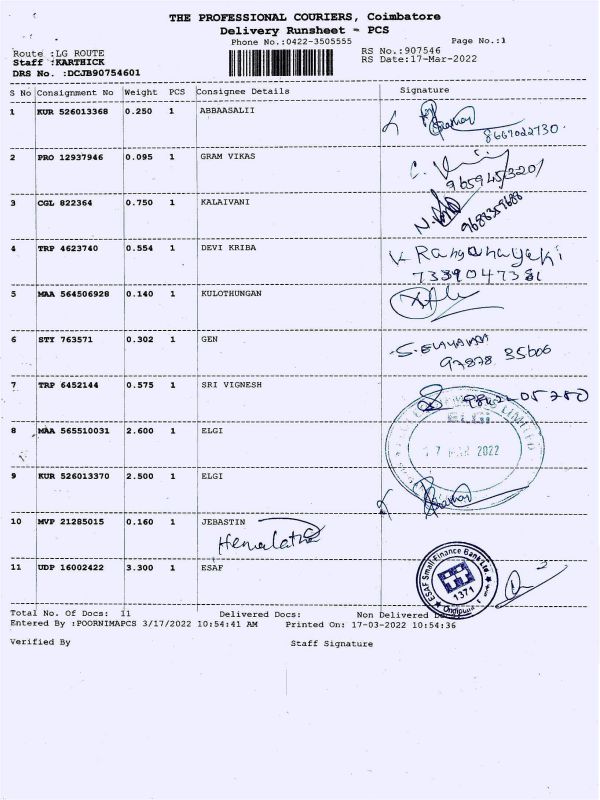 THE PROFESSIONAL COURIERS, Coimbatore
Delivery Runsheet - PCS
Phone No.:0422-3505555
Page No.:1
Route :LG ROUTE
RS No.:907546
Staff :KARTHICK
RS Date:17-Mar-2022
DRS No. :DCJB90754601
S No Consignment No Weight PCS Consignee Details Signature
1 KUR 526013368 0.250 1 ABBAASALII
8667022730.
2 PRO 12937946 0.095 1 GRAM VIKAS
9659453201
3 CGL 822364 0.750 1 KALAIVANI
9688359688
4 TRP 4623740 0.554 1 DEVI KRIBA
V Ranganayaki
7339047381
5 MAA 564506928 0.140 1 KULOTHUNGAN
6 STY 763571 0.302 1 GEN
97878 35606
7 TRP 6452144 0.575 1 SRI VIGNESH
8 MAA 565510031 2.600 1 ELGI
LIMITED
ELGI
17 MAR 2022
9 KUR 526013370 2.500 1 ELGI
10 MVP 21285015 0.160 1 JEBASTIN
Hemalatha
11 UDP 16002422 3.300 1 ESAF
ESAF Small Finance Bank Ltd.
1371
Total No. Of Docs: 11 Delivered Docs: Non Delivered Docs:
Entered By :POORNIMAPCS 3/17/2022 10:54:41 AM Printed On: 17-03-2022 10:54:36
Verified By Staff Signature